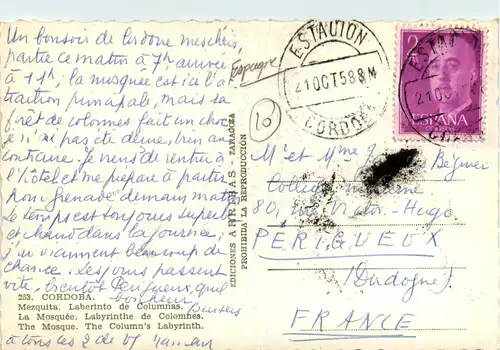 Un bonsoir de Cordoue mes chéris,
partie ce matin à 7h arrivée
à 11h, la mosquée est ici l'at
traction principale, mais sa
forêt de colonnes fait un choc
je n'ai pas été déçue, bien au
contraire. Je viens de rentrer à
l'hôtel et me prépare à partir
pour Grenade demain matin
Le temps est toujours superbe
et chaud dans la journée,
j'ai vraiment beaucoup de
chance. Les jours passent
vite, bientôt Périgueux, quel
bonheur Baisers
à tous les 2 de
253. CORDOBA.
Mezquita. Laberinto de Columnas.
La Mosquée. Labyrinthe de Colonnes.
The Mosque. The Column's Labyrinth.
EDICIONES ARRIBAS - ZARAGOZA
PROHIBIDA LA REPRODUCCIÓN
Espagne
10
ESTACION
21 OCT 58 8M
CORDOBA
2
ESPAÑA
CORREOS
ESTA
21 OCT
M. et Mme
Collège moderne
80, rue Victor-Hugo
PÉRIGUEUX
(Dordogne)
FRANCE